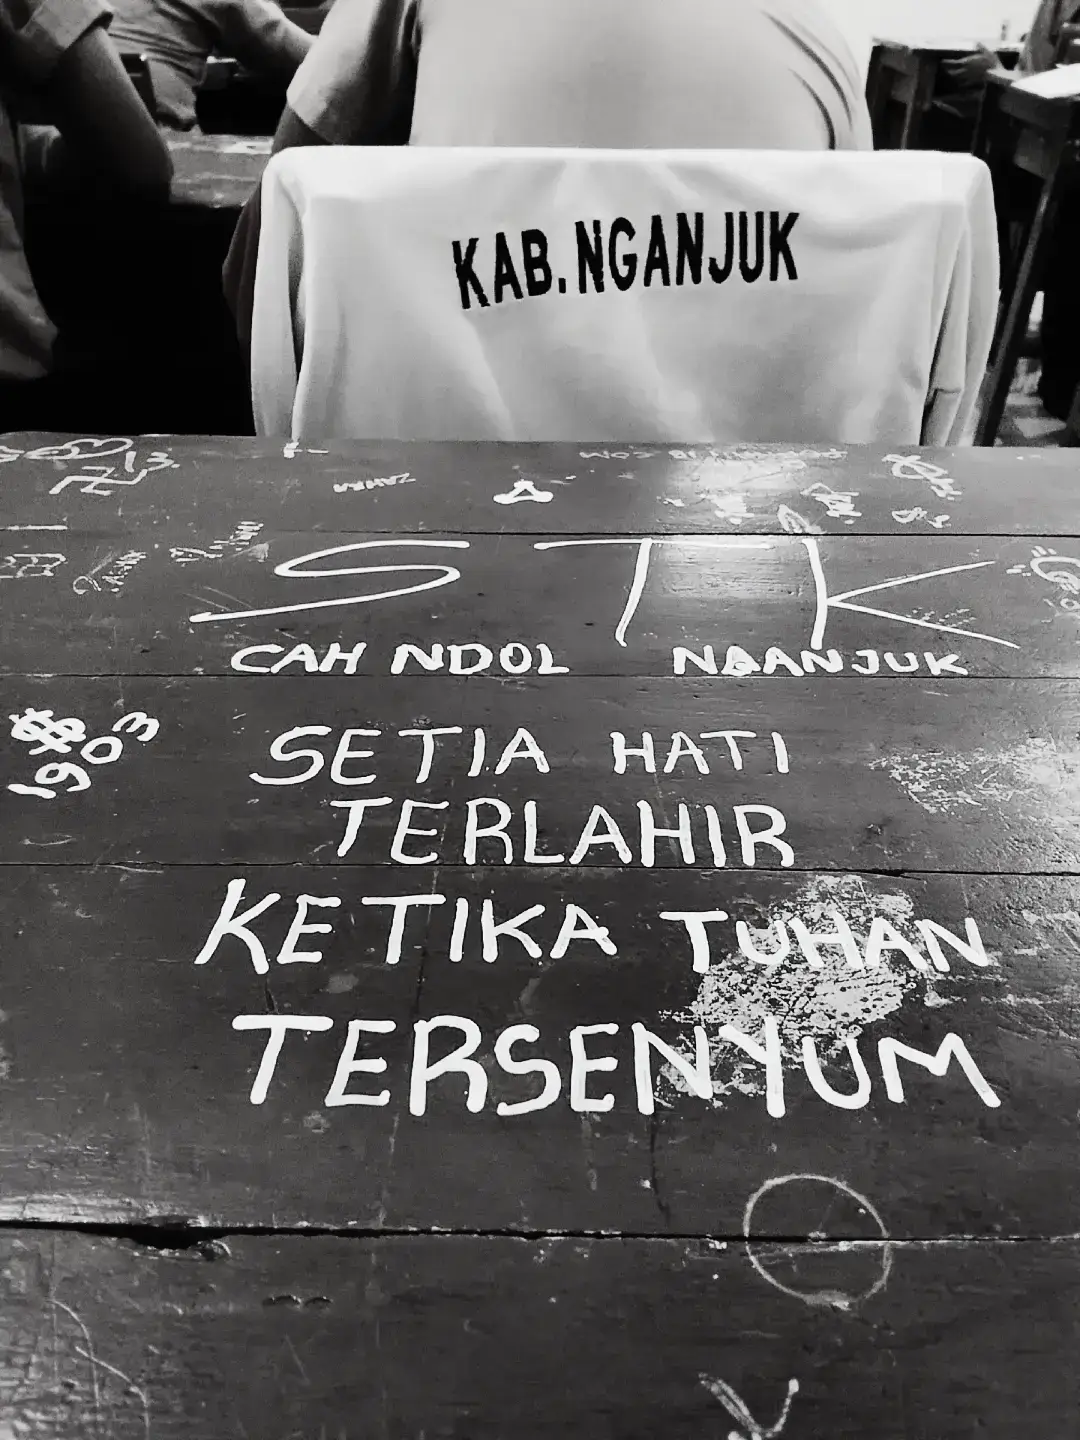 KAB. NGANJUK
ZAHRA
STK
CAH NDOL NGANJUK
1903
SETIA HATI
TERLAHIR
KETIKA TUHAN
TERSENYUM